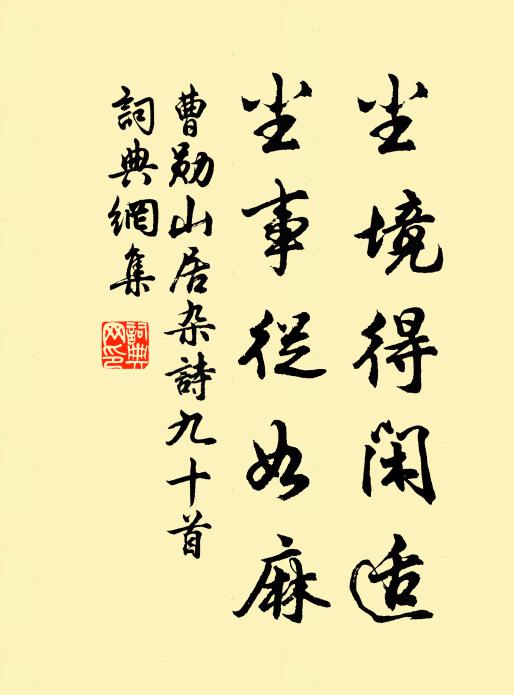 尘境得闲适
尘事从如麻
曹勋山居杂诗九十首
词典网集
词典网印